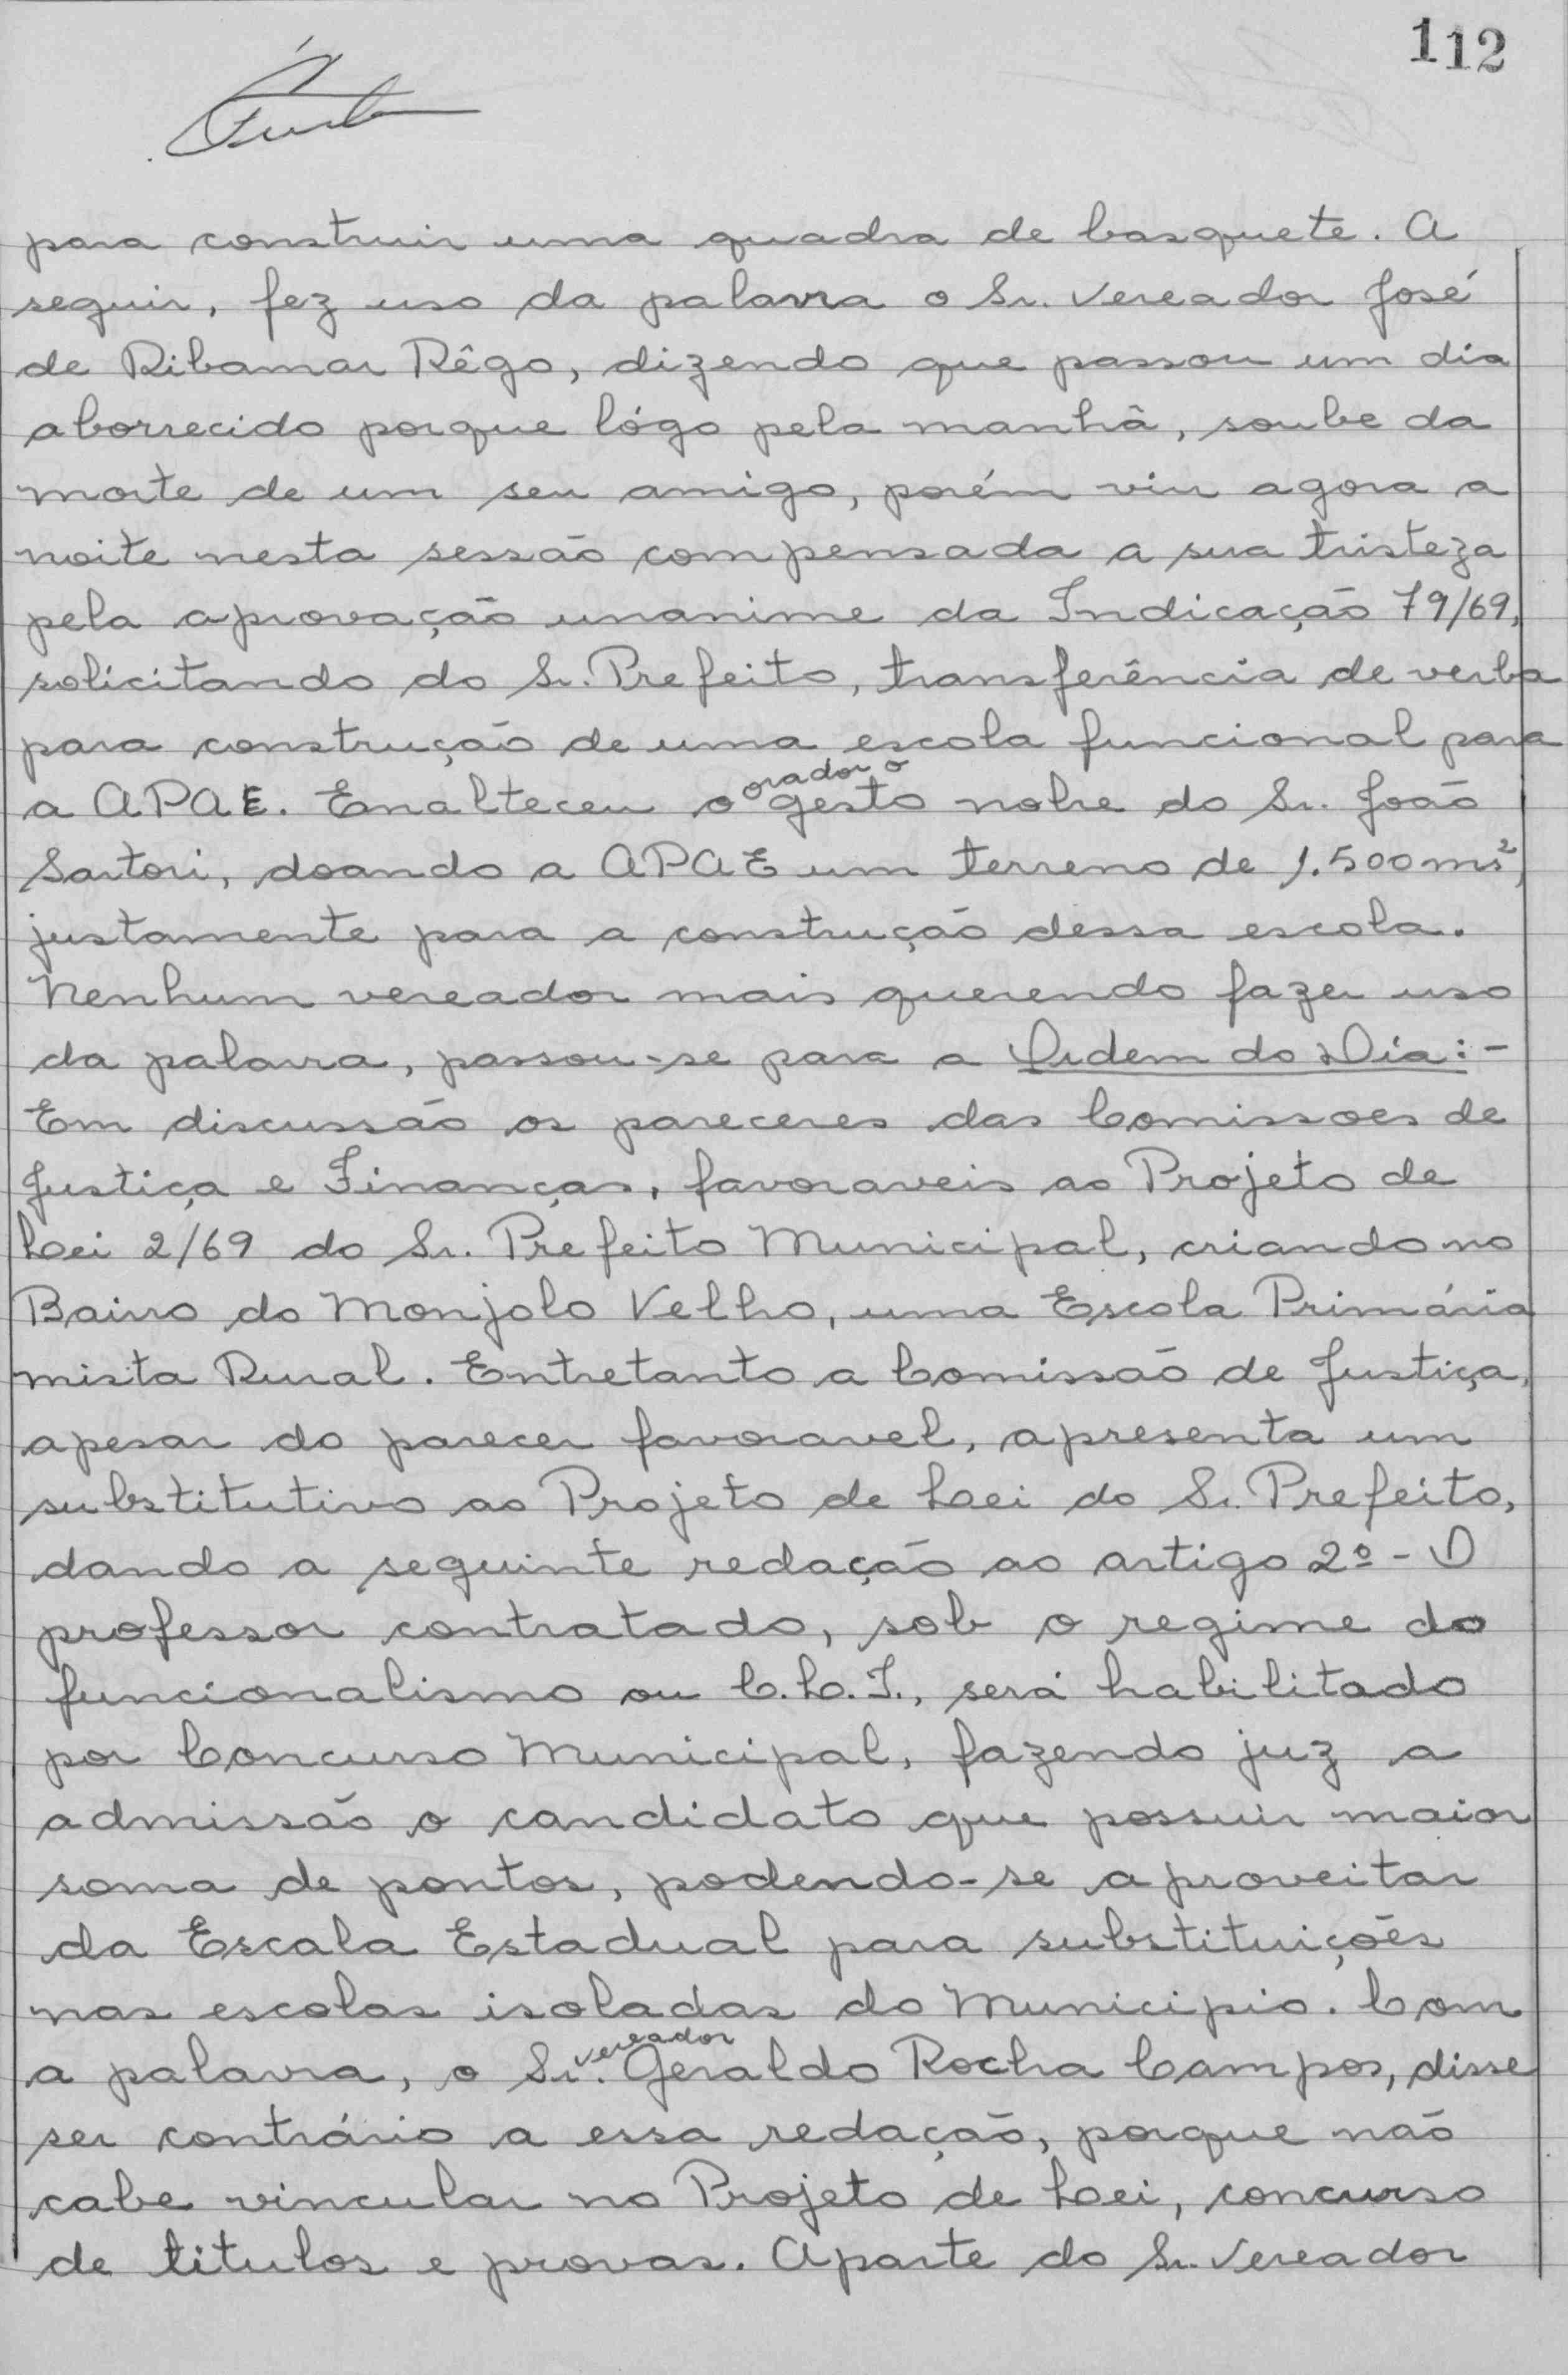 112
para construir uma quadra de basquete. A
seguir, fez uso da palavra o Sr. Vereador José
de Ribamar Rêgo, dizendo que passou um dia
aborrecido porque lógo pela manhã, soube da
morte de um seu amigo, porém viu agora a
noite nesta sessão compensada a sua tristeza
pela aprovação unanime da Indicação 79/69,
solicitando do Sr. Prefeito, transferência de verba
para construção de uma escola funcional para
a APAE. Enalteceu o orador o gesto nobre do Sr. João
Sartori, doando a APAE um terreno de 1.500ms²,
justamente para a construção dessa escola.
Nenhum vereador mais querendo fazer uso
da palavra, passou-se para a Ordem do Dia:-
Em discussão os pareceres das Comissoes de
Justiça e Finanças, favoraveis ao Projeto de
Lei 2/69 do Sr. Prefeito Municipal, criando no
Bairro do Monjolo Velho, uma Escola Primária
mista Rural. Entretanto a Comissão de Justiça,
apesar do parecer favoravel, apresenta um
substitutivo ao Projeto de Lei do Sr. Prefeito,
dando a seguinte redação ao artigo 2º - O
professor contratado, sob o regime do
funcionalismo ou C.L.T., será habilitado
por Concurso Municipal, fazendo juz a
admissão o candidato que possuir maior
soma de pontos, podendo-se aproveitar
da Escala Estadual para substituições
nas escolas isoladas do Municipio. Com
a palavra, o Sr. vereador Geraldo Rocha Campos, disse
ser contrário a essa redação, porque não
cabe vincular no Projeto de Lei, concurso
de titulos e provas. Aparte do Sr. Vereador